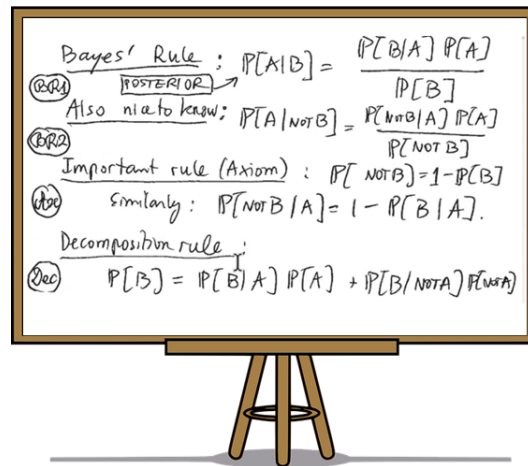 Bayes' Rule : P[A|B] = P[B|A] P[A] / P[B]
BR1 POSTERIOR
Also nice to know: P[A|NOT B] = P[NOT B|A] P[A] / P[NOT B]
BR2
Important rule (Axiom) : P[NOT B] = 1 - P[B]
Ax Similarly : P[NOT B|A] = 1 - P[B|A].
Decomposition rule :
Dec P[B] = P[B|A] P[A] + P[B|NOT A] P[NOT A]